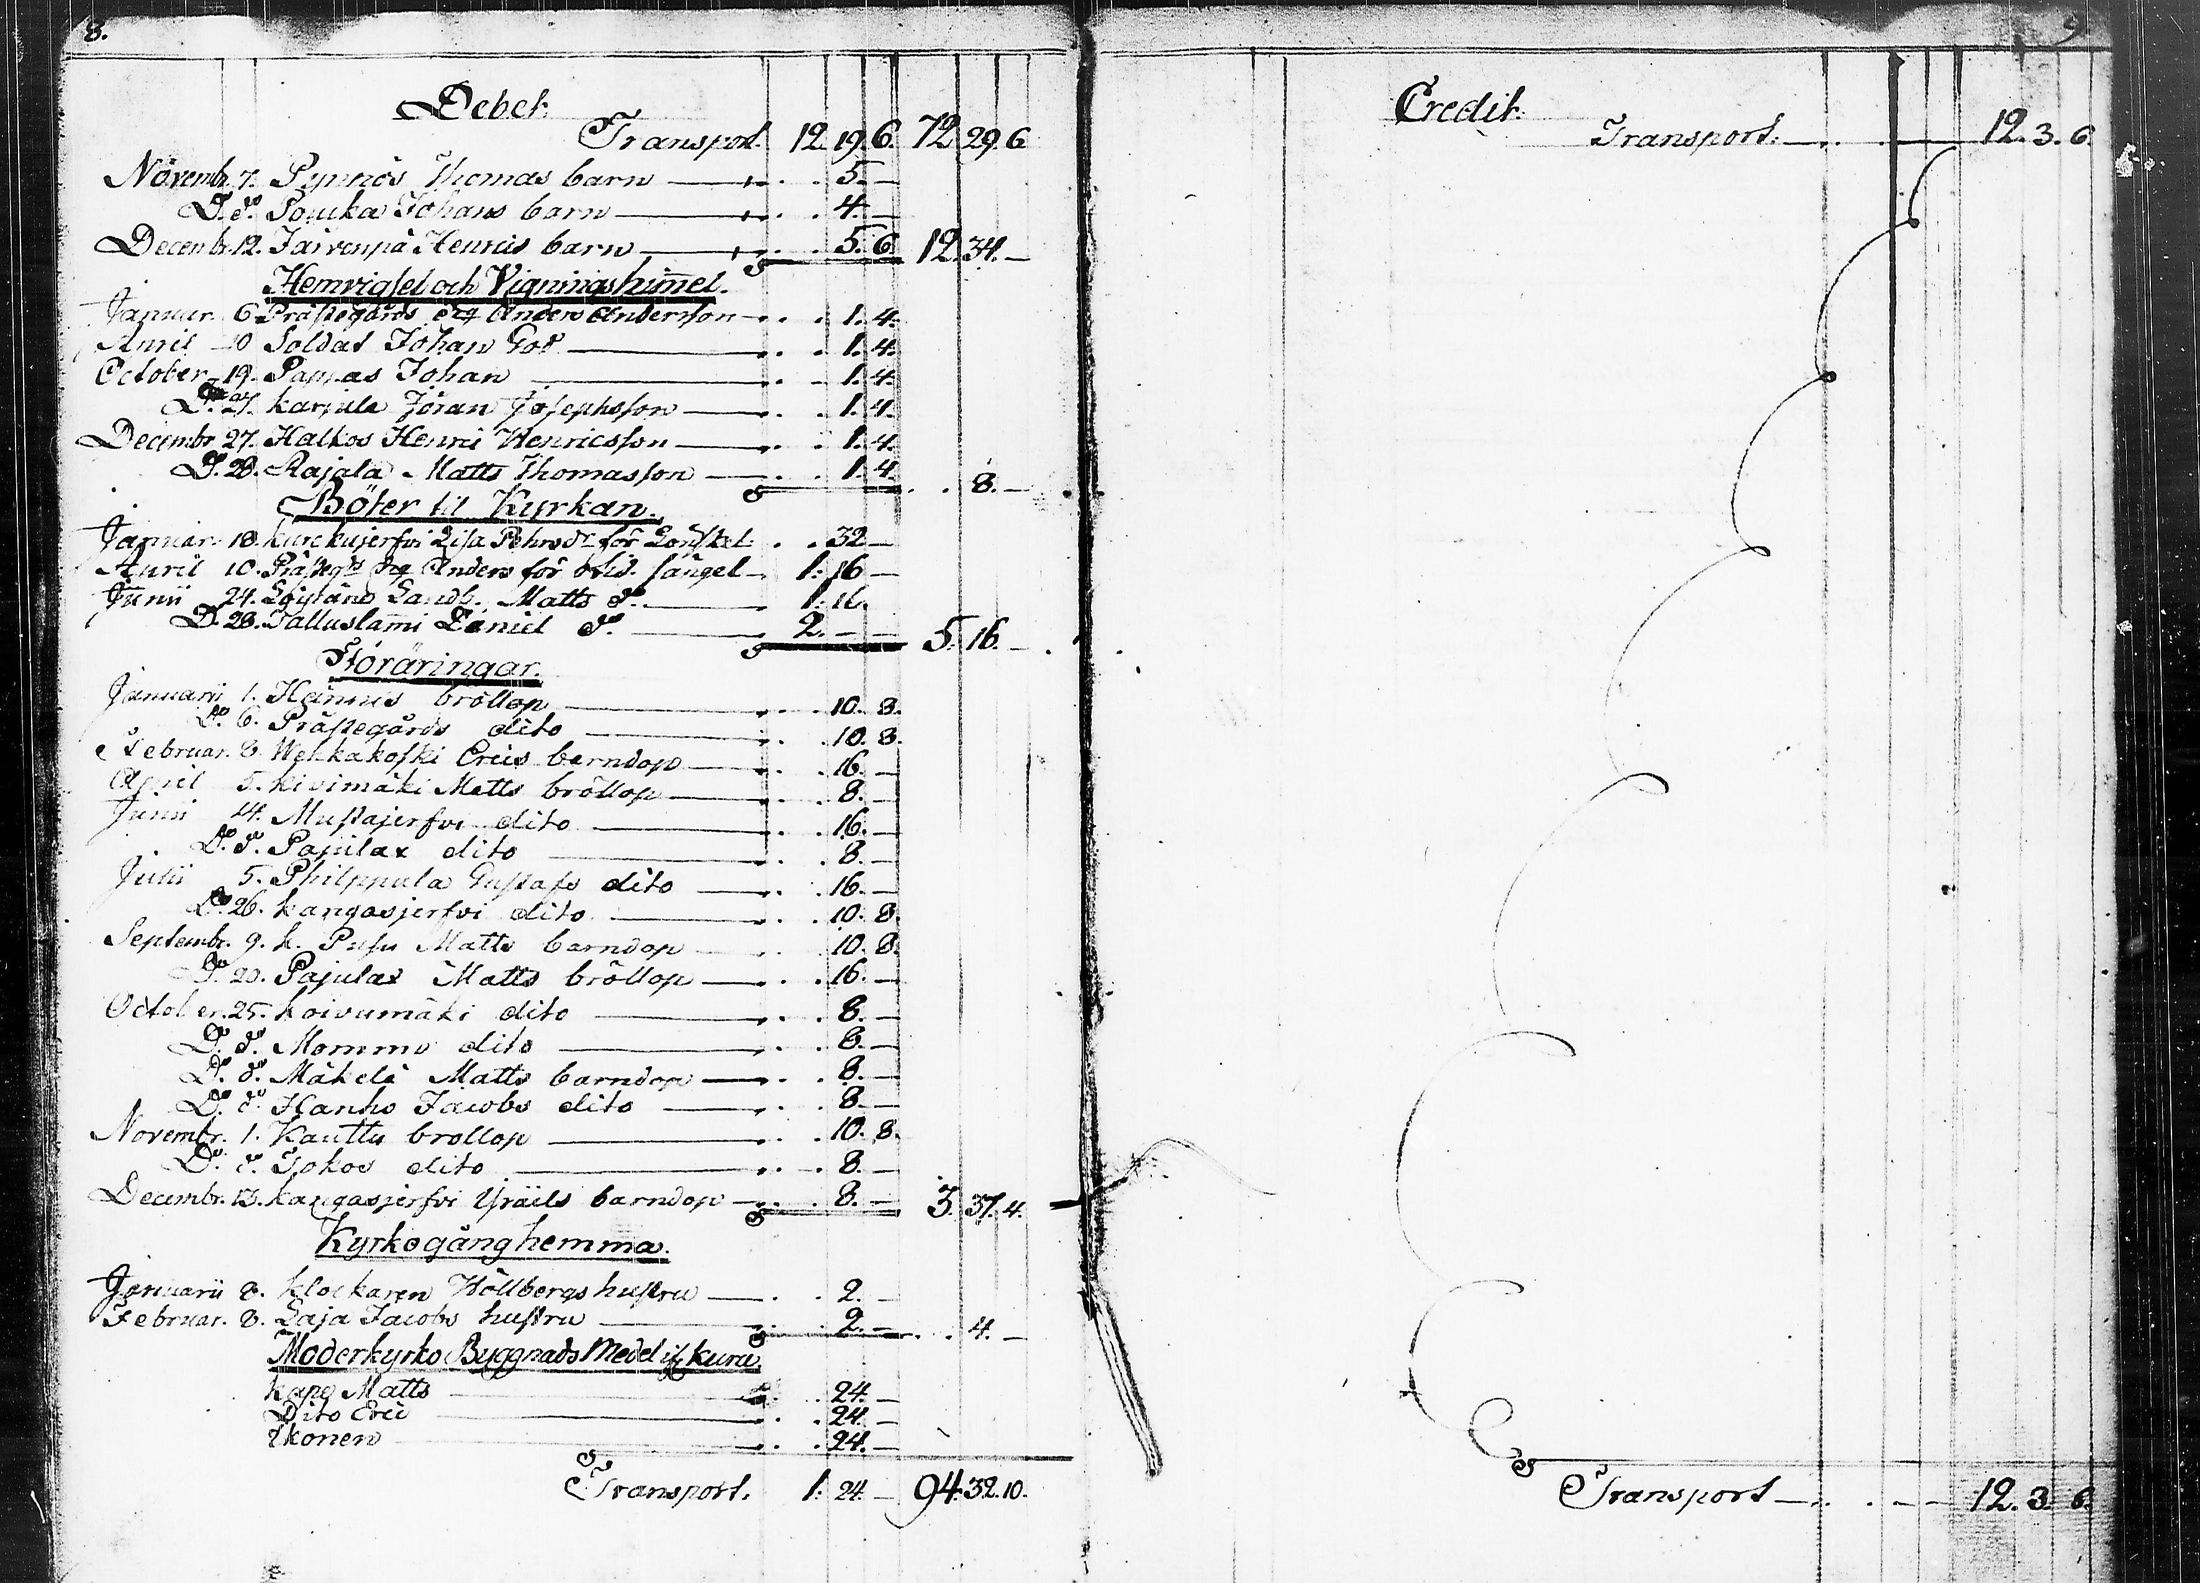 8.
Debet.
Transport. 12. 19. 6. 72. 29. 6
Novembr. 7. Pynnös Thomas barn — 5. —
D. d:o Pouka Johans barn — 4. —
Decembr. 12. Järvenpä Henrics barn — 5. 6. 12. 34. —
Hemvigsel och Vigningshimmel.
Januar. 6. Prästegårds Anders Andersson — 1. 4.
April 10 Soldat Johan God — 1. 4.
October 19. Pappas Johan — 1. 4.
D:o 27. Karjula Jöran Josephsson — 1. 4.
Decembr 27. Halkos Henric Henricsson — 1. 4.
D. 28. Rajala Matts Thomasson — 1. 4. 8. —
Böter til Kyrkan.
Januar. 18. Kurckijerfvi Lisa Pehrsdr för Lönskel. 32 —
April 10. Prästegds Anders för sängel — 1: 16 —
Junii 24. Matts d:o — 1: 16.
D. 28. Talluslammi Daniel d:o — 2. — — 5. 16. —
Föräringar.
Januarii 1. Heinnis bröllop — 10. 8.
D:o 6. Prästegårds dito — 10. 8.
Februar. 8. Wehkakoski Erics barndop — 16. —
April 5. Kivimäki Matts bröllop — 8. —
Junii 14. Mustajerfvi dito — 16. —
D:o d:o Papilax dito — 8. —
Julii 5. Philppula Gustafs dito — 16. —
D:o 26. Kangasjerfvi dito — 10. 8.
Septembr. 9. k. Pusu Matts barndop — 10. 8.
D:o 20. Pajulax Matts bröllop — 16. —
October. 25. Koivumäki dito — 8. —
D:o d:o Mommo dito — 8. —
D:o d:o Mäkelä Matts barndop — 8. —
D:o d:o Hanho Jacobs dito — 8. —
Novembr. 1. Kauttu bröllop — 10. 8.
D:o d:o Jokos dito — 8. —
Decembr. 13. Kangasjerfvi Israels barndop — 8. — 3. 37. 4.
Kyrkogång hemma.
Januarii 8. Klockaren Höllbergs hustru — 2. —
Februar. 8. Laja Jacobs hustru — 2. — 4. —
Moderkyrko Byggnads Medel if Kuru.
Kapg Matts — 24. —
Dito Eric — 24. —
Ikonen — 24. —
Transport. 1: 24. — 94. 32. 10.
9
Credit.
Transport. — 12. 3. 6.
Transport — 12. 3. 6.